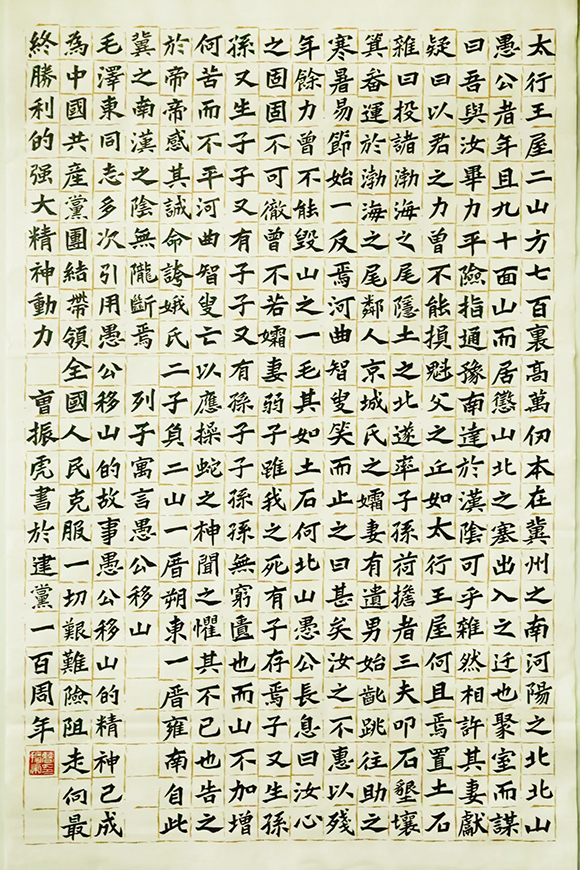 太行王屋二山方七百裏高萬仞本在冀州之南河陽之北北山
愚公者年且九十面山而居懲山北之塞出入之迂也聚室而謀
曰吾與汝畢力平險指通豫南達於漢陰可乎雜然相許其妻獻
疑曰以君之力曾不能損魁父之丘如太行王屋何且焉置土石
雜曰投諸渤海之尾隱土之北遂率子孫荷擔者三夫叩石墾壤
箕畚運於渤海之尾鄰人京城氏之孀妻有遺男始齔跳往助之
寒暑易節始一反焉河曲智叟笑而止之曰甚矣汝之不惠以殘
年餘力曾不能毀山之一毛其如土石何北山愚公長息曰汝心
之固固不可徹曾不若孀妻弱子雖我之死有子存焉子又生孫
孫又生子子又有子子又有孫子子孫孫無窮匱也而山不加增
何苦而不平河曲智叟亡以應操蛇之神聞之懼其不已也告之
於帝帝感其誠命誇娥氏二子負二山一厝朔東一厝雍南自此
冀之南漢之陰無隴斷焉 列子寓言愚公移山
毛澤東同志多次引用愚公移山的故事愚公移山的精神已成
為中國共產黨團結帶領全國人民克服一切艱難險阻走向最
終勝利的强大精神動力 曹振虎書於建黨一百周年